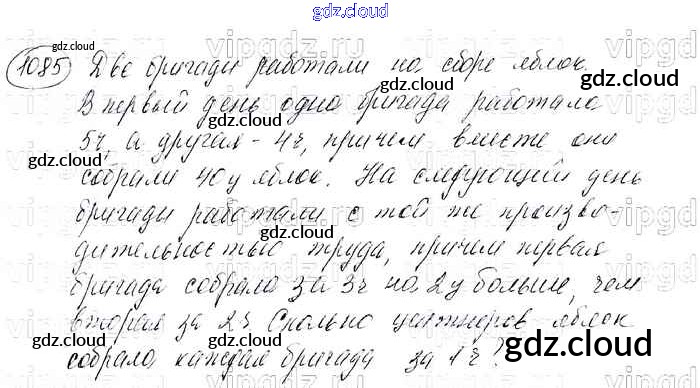 gdz.cloud
1085 Две бригады работали на сборе яблок.
В первый день одна бригада работала
5ч, а другая - 4ч, причем вместе они
собрали 40ц яблок. На следующий день
бригады работали с той же произво-
дительностью труда, причем первая
бригада собрала за 3ч на 2ц больше, чем
вторая за 2ч. Сколько центнеров яблок
собрала каждая бригада за 1ч?
gdz.cloud
gdz.cloud
gdz.cloud
gdz.cloud
gdz.cloud
gdz.cloud
gdz.cloud
gdz.cloud
gdz.cloud